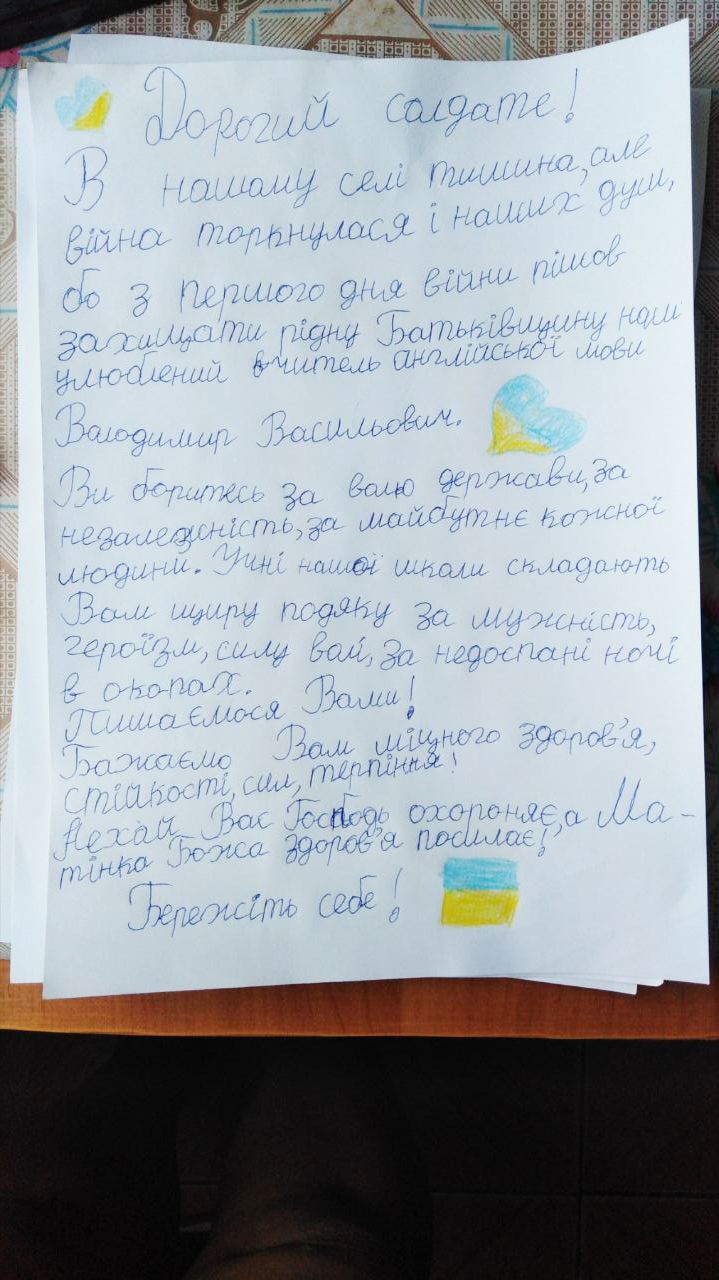 Дорогий солдате!
В нашому селі тишина, але
війна торкнулася і наших душ,
бо з першого дня війни пішов
захищати рідну Батьківщину наш
улюблений вчитель англійської мови
Володимир Васильович.
Ви боритесь за волю держави, за
незалежність, за майбутнє кожної
людини. Учні нашої школи складають
Вам щиру подяку за мужність,
героїзм, силу волі, за недоспані ночі
в окопах.
Пишаємося Вами!
Бажаємо Вам міцного здоров'я,
стійкості, сил, терпіння!
Нехай Вас Господь охороняє, а Ма-
тінка Божа здоров'я посилає!
Бережіть себе!